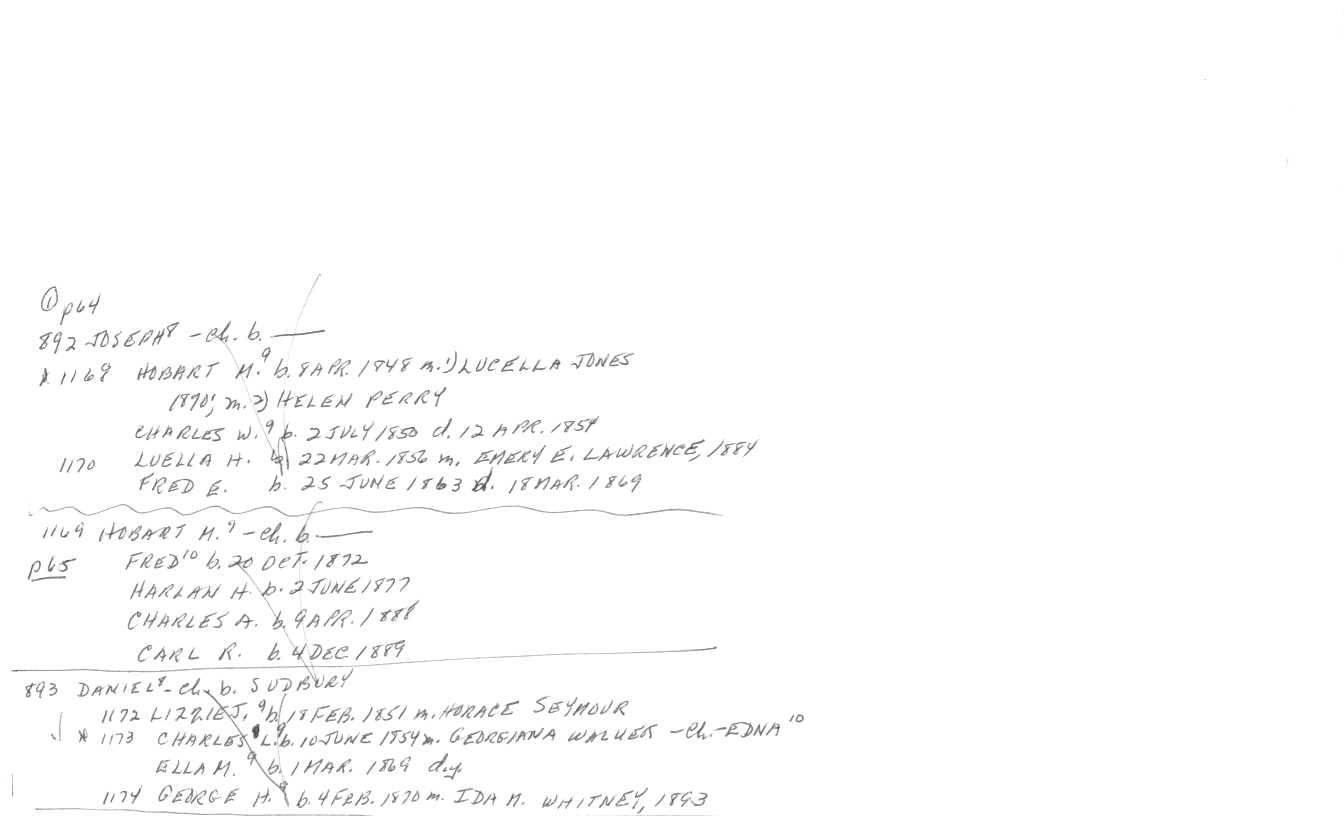 ① p64
892 JOSEPH⁸ - ch. b. ——
* 1169 HOBART M.⁹ b. 8 APR. 1848 m. 1) LUCELLA JONES
1870; m. 2) HELEN PERRY
CHARLES W.⁹ b. 2 JULY 1850 d. 12 APR. 1854
1170 LUELLA H. b. 22 MAR. 1856 m. EMERY E. LAWRENCE, 1884
FRED E. b. 25 JUNE 1863 d. 18 MAR. 1869
1169 HOBART M.⁹ - ch. b. ——
p65 FRED¹⁰ b. 20 OCT. 1872
HARLAN H. b. 2 JUNE 1877
CHARLES A. b. 9 APR. 1888
CARL R. b. 4 DEC 1889
893 DANIEL⁸ - ch. b. SUDBURY
1172 LIZZIE J.⁹ b. 18 FEB. 1851 m. HORACE SEYMOUR
* 1173 CHARLES L.⁹ b. 10 JUNE 1854 m. GEORGIANA WALKER - Ch. - EDNA¹⁰
ELLA M.⁹ b. 1 MAR. 1869 d.y.
1174 GEORGE H.⁹ b. 4 FEB. 1870 m. IDA M. WHITNEY, 1893